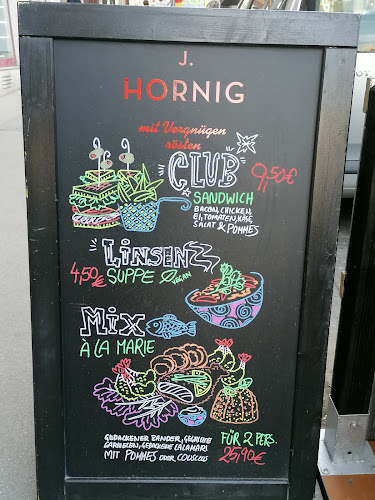 J.
HORNIG
mit Vergnügen
rösten
CLUB
9,50€
SANDWICH
BACON, CHICKEN,
EI, TOMATEN, KÄSE,
SALAT & POMMES
LINSEN
4,50€ SUPPE VEGAN
MiX
À LA MARIE
GEBACKENER ZANDER, GEGRILLTE
GARNELEN, GEBACKENE CALAMARI
MIT POMMES ODER COUSCOUS
FÜR 2 PERS.
25,90€